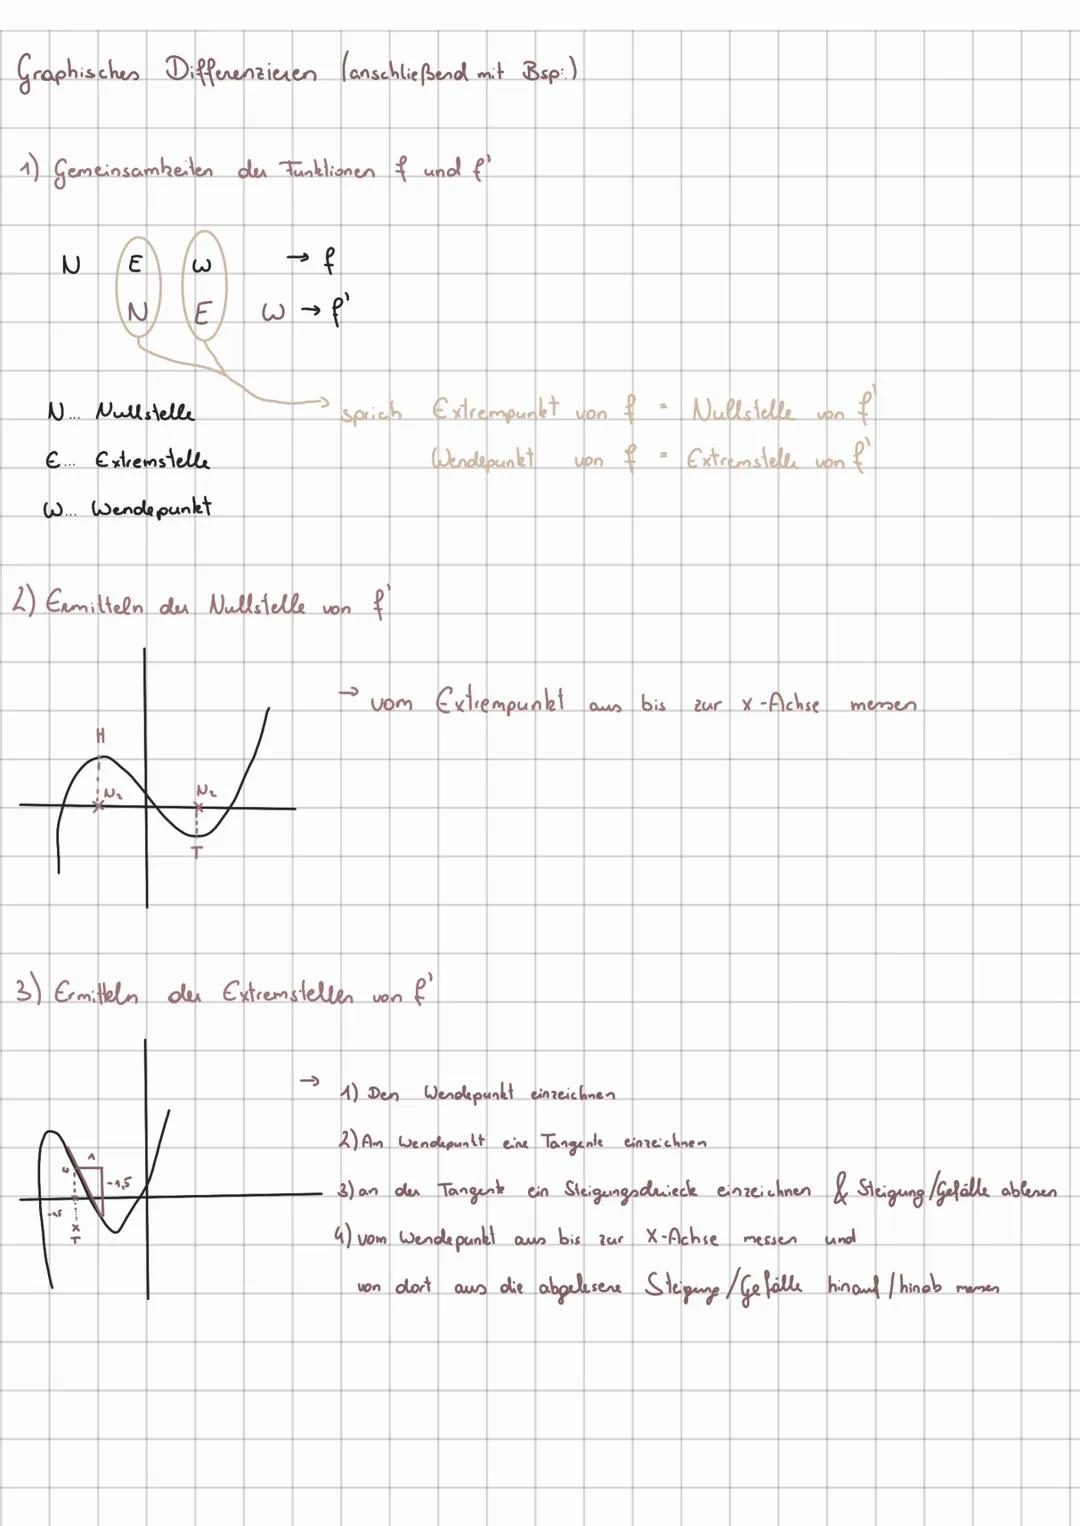 Graphisches Differenzieren (anschließend mit Bsp.:)
1) Gemeinsamkeiten der Funktionen f und f'
N E W → f
N E W → f'
N... Nullstelle → sprich Extrempunkt von f = Nullstelle von f'
E... Extremstelle Wendepunkt von f = Extremstelle von f'
W... Wendepunkt
2) Ermitteln der Nullstelle von f'
→ vom Extrempunkt aus bis zur x-Achse messen
H
N₂ N₂
T
3) Ermitteln der Extremstellen von f'
→ 1) Den Wendepunkt einzeichnen
2) Am Wendepunkt eine Tangente einzeichnen
W 1 -1,5
3) an der Tangente ein Steigungsdreieck einzeichnen & Steigung/Gefälle ablesen
-1,5
T
4) vom Wendepunkt aus bis zur X-Achse messen und
von dort aus die abgelesene Steigung/Gefälle hinauf/hinab messen